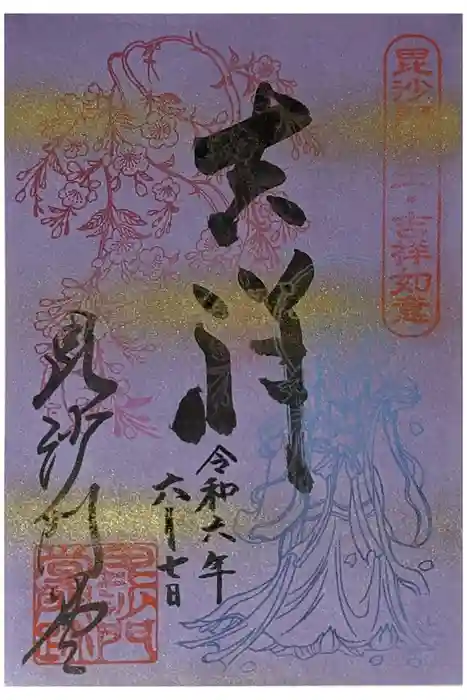 毘沙門天王・吉祥如意
吉祥
令和六年
六十七日
毘沙門堂
毘沙門